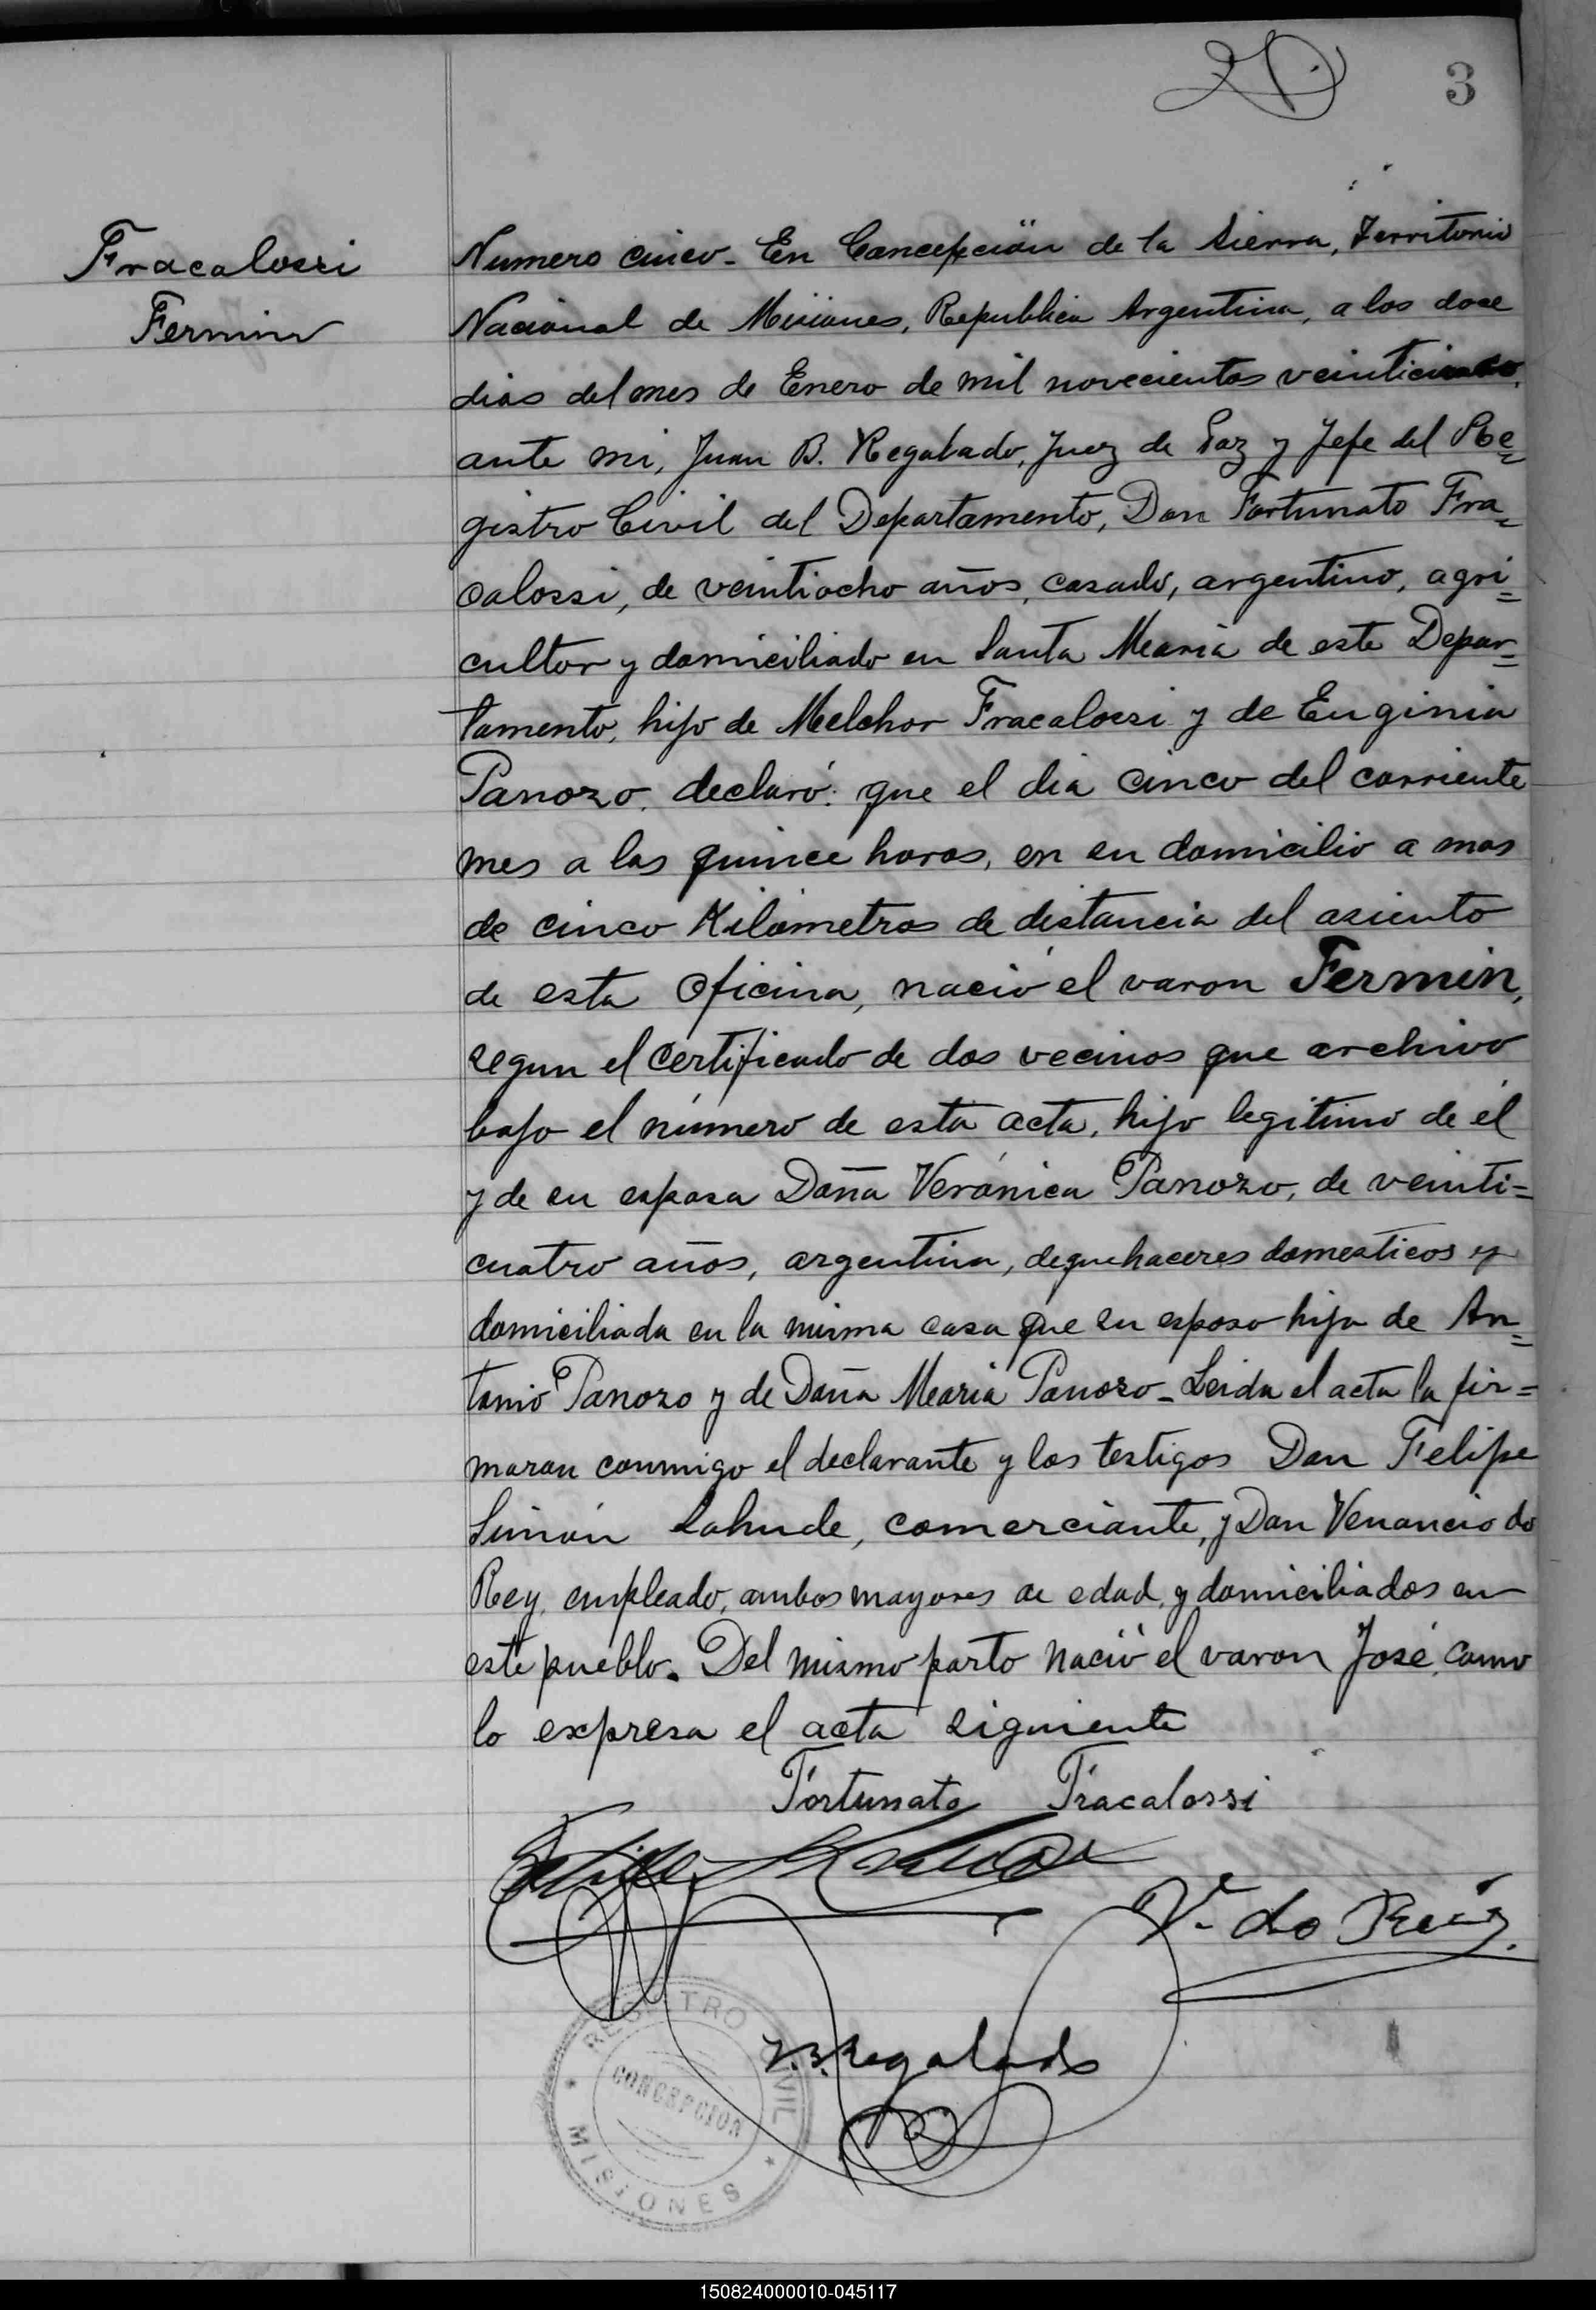 3
Fracalossi
Fermin
Numero cinco - En Concepción de la Sierra, Territorio
Nacional de Misiones, Republica Argentina, a los doce
dias del mes de Enero de mil novecientos veinticinco,
ante mi, Juan B. Regalado, Juez de Paz y Jefe del Re=
gistro Civil del Departamento, Don Fortunato Fra=
calossi, de veintiocho años, casado, argentino, agri=
cultor y domiciliado en Santa Maria de este Depar=
tamento, hijo de Melchor Fracalossi y de Euginia
Panozo, declaró: que el dia cinco del corriente
mes a las quince horas, en su domicilio a mas
de cinco Kilometros de distancia del asiento
de esta Oficina, nació el varon Fermin,
segun el certificado de dos vecinos que archivo
bajo el número de esta acta, hijo legitimo de él
y de su esposa Doña Verónica Panozo, de veinti=
cuatro años, argentina, de quehaceres domesticos y
domiciliada en la misma casa que su esposo hija de An=
tonio Panozo y de Doña Maria Panozo - Leida el acta la fir=
maron conmigo el declarante y los testigos Don Felipe
Simón Sahude, comerciante, y Don Venancio do
Rey, empleado, ambos mayores de edad, y domiciliados en
este pueblo. Del mismo parto nació el varon José, como
lo expresa el acta siguiente
Fortunato Fracalossi
V. do Rey.
J.B. Regalado
REGISTRO CIVIL
CONCEPCION
MISIONES
150824000010-045117